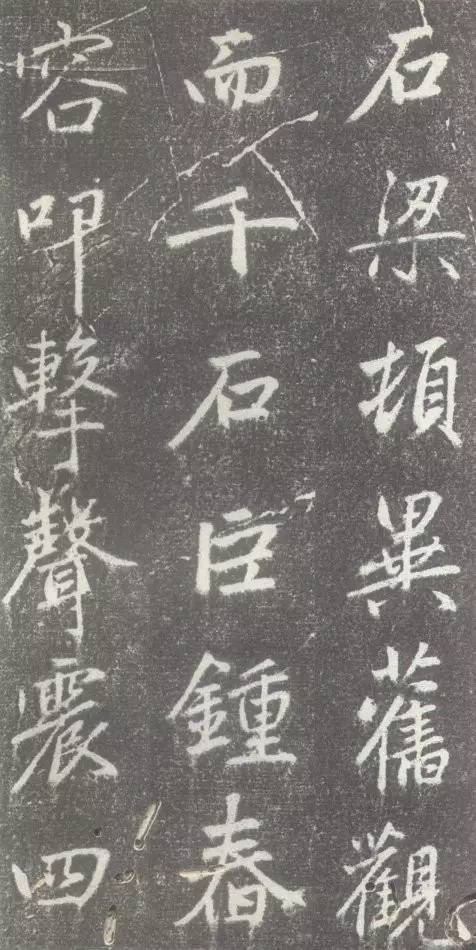 石梁頓異舊觀
而千石巨鍾舂
容叩擊聲震四